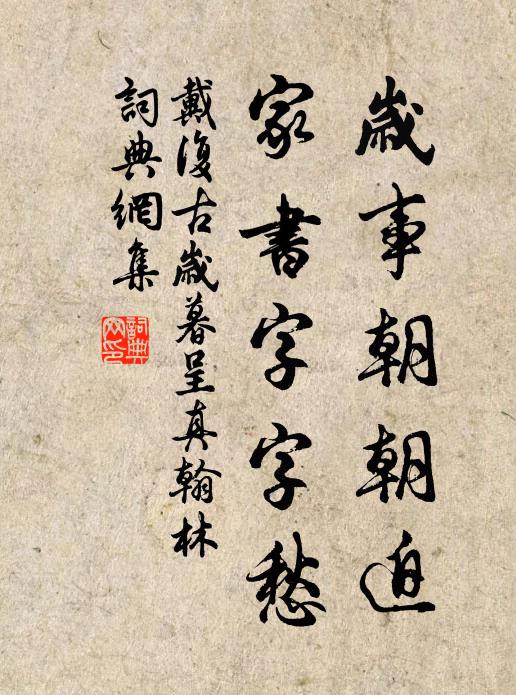 歲事朝朝迫
家書字字愁
戴復古歲暮呈真翰林
詞典網集
詞典網印